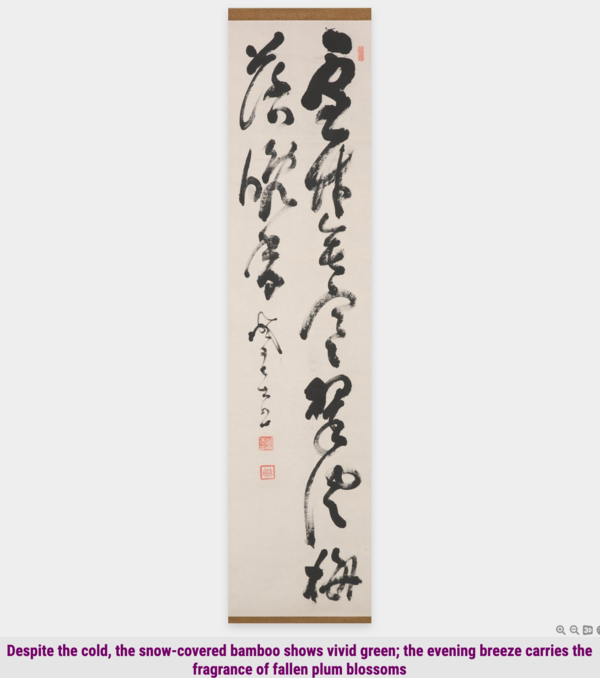 雪竹寒翠風梅
落晩香
Despite the cold, the snow-covered bamboo shows vivid green; the evening breeze carries the
fragrance of fallen plum blossoms